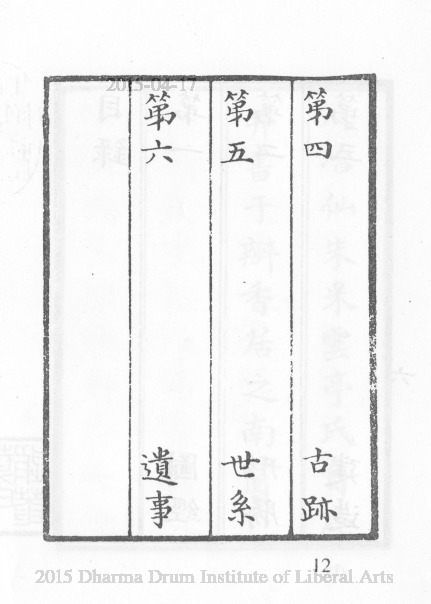 2015-04-17
第四 古跡
第五 世系
第六 遺事
12
2015 Dharma Drum Institute of Liberal Arts